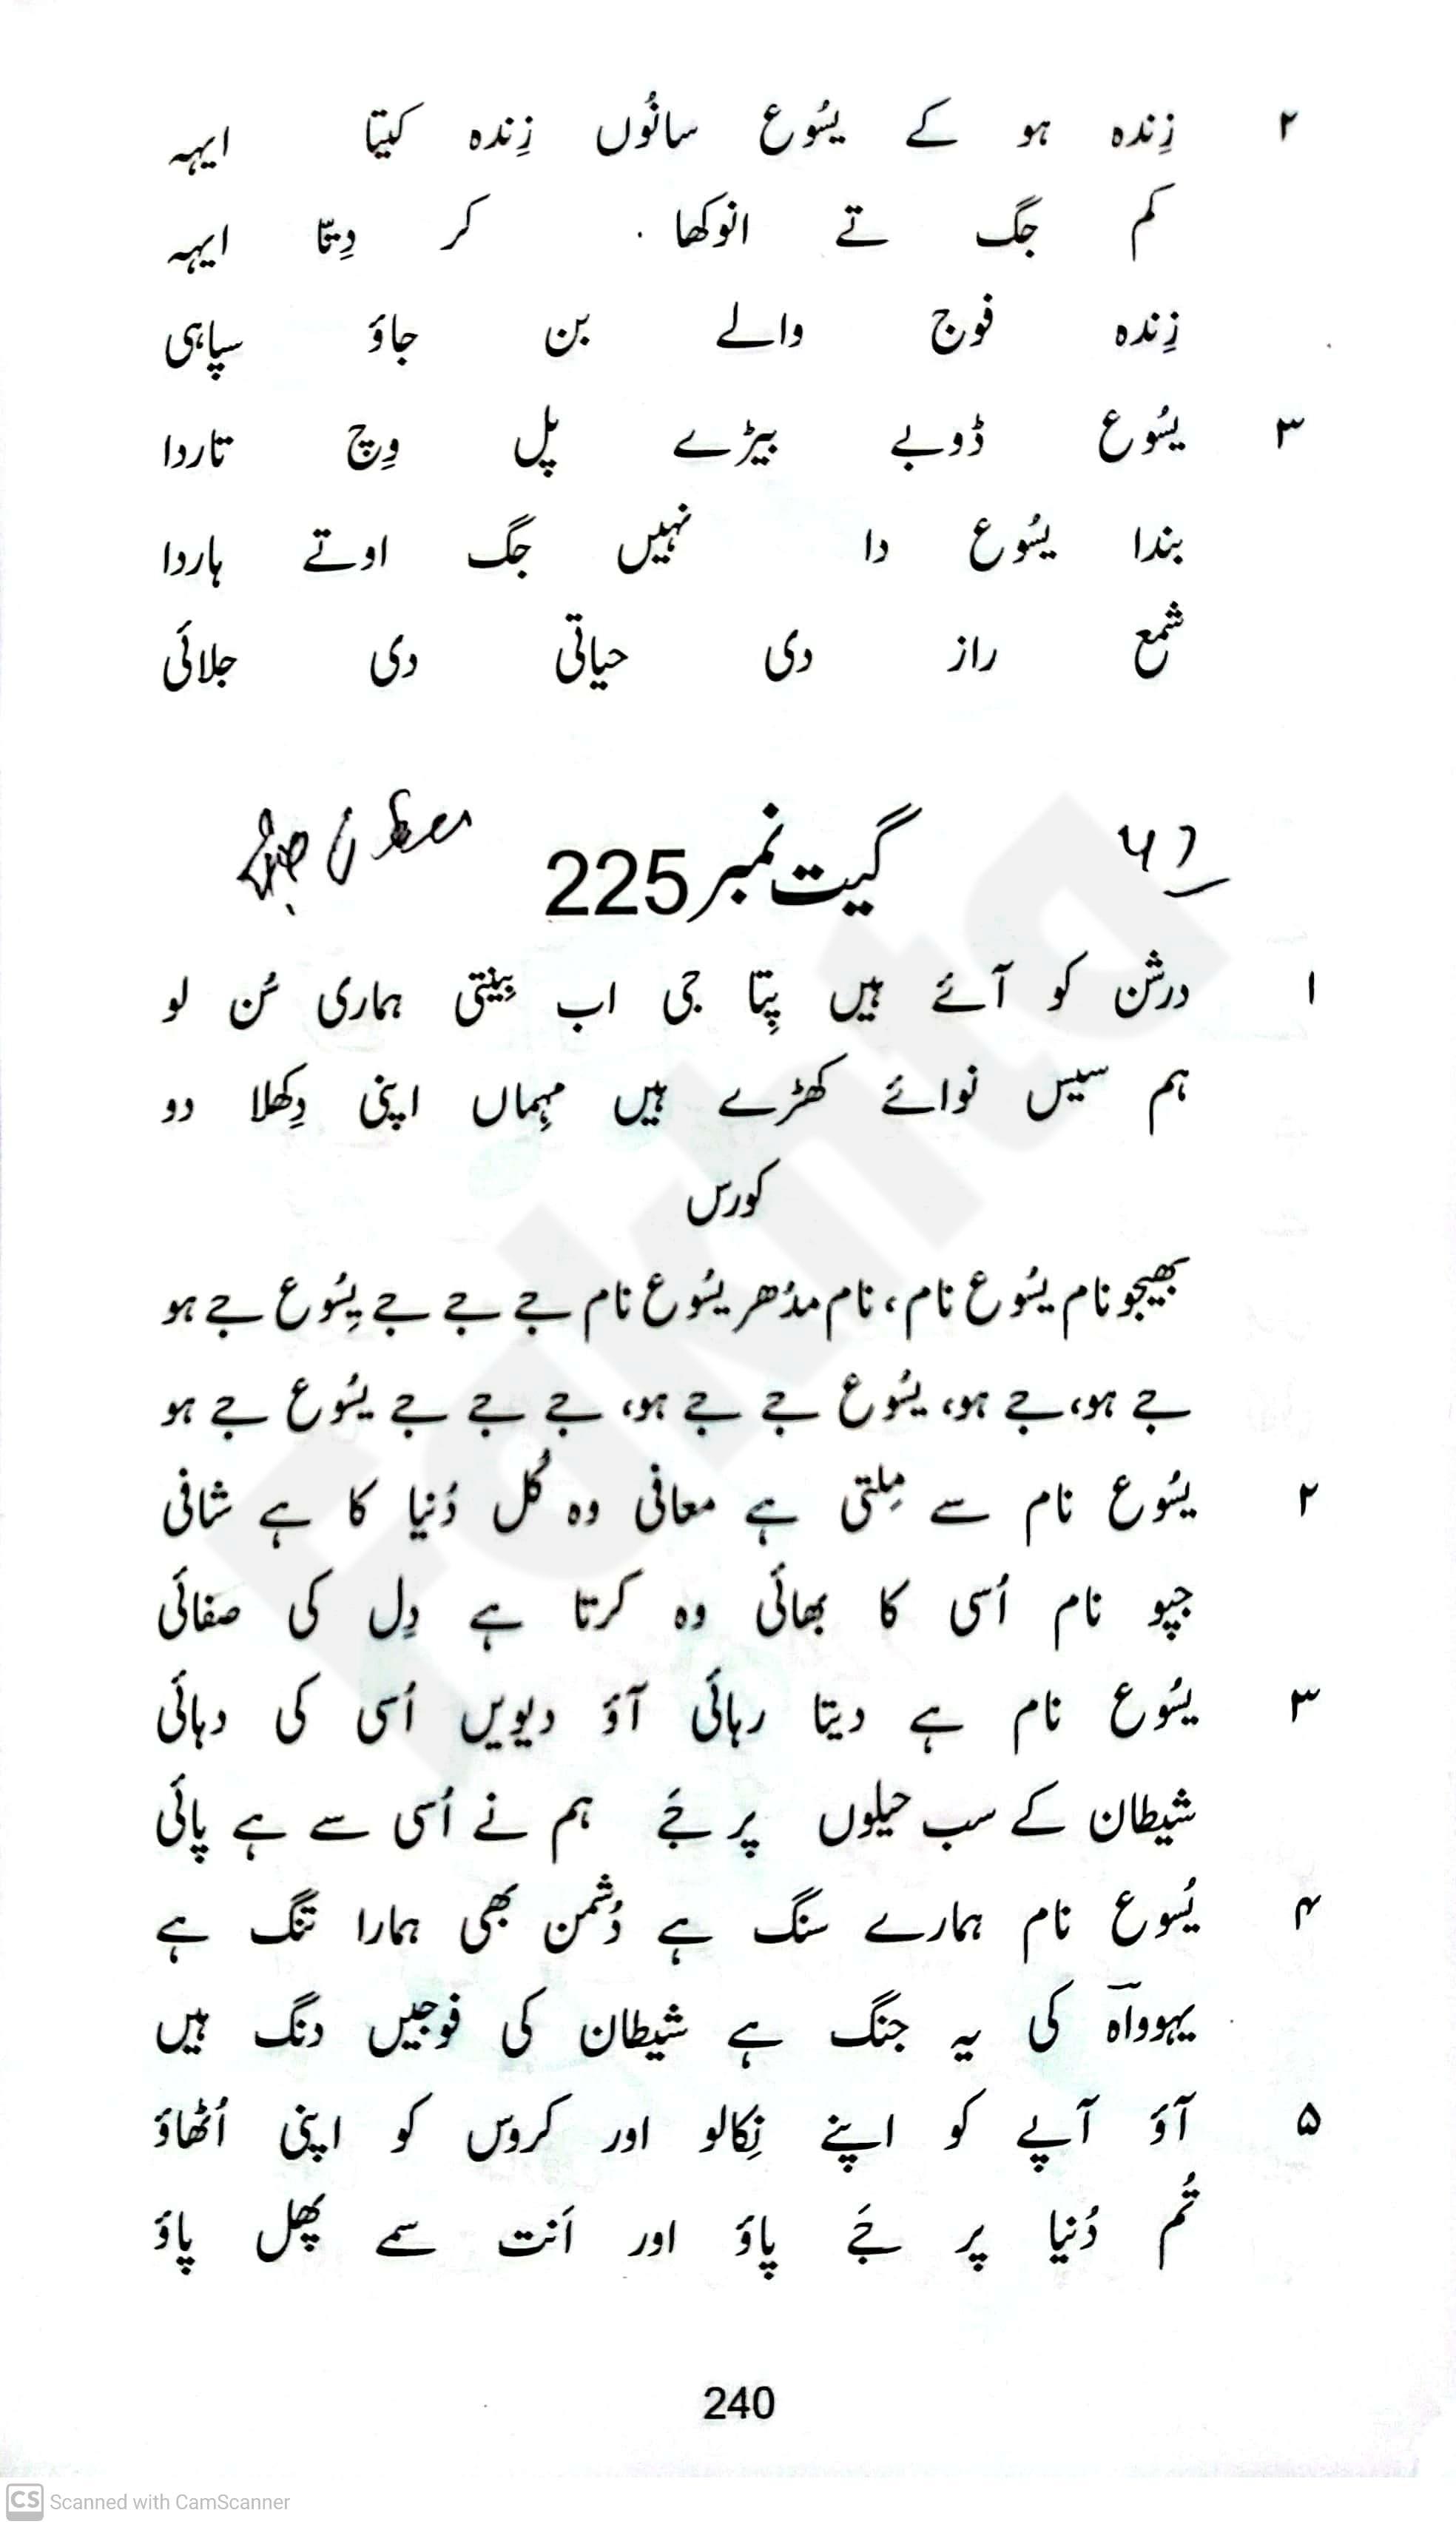 ۲ زِندہ ہو کے یسُوع سانُوں زِندہ کیتا ایہہ
کم جگ تے انوکھا کر دِیتّا ایہہ
زِندہ فوج والے بن جاؤ سپاہی
۳ یسُوع ڈوبے بیڑے پل وِچ تاردا
بندا یسُوع دا نہیں جگ اوتے ہاردا
شمع راز دی حیاتی دی جلائی
گیت نمبر 225
۱ درشن کو آئے ہیں پِتا جی اب بِینتی ہماری سُن لو
ہم سیس نوائے کھڑے ہیں مہِماں اپنی دِکھلا دو
کورس
بھیجو نام یسُوع نام، نام مدُھر یسُوع نام جے جے جے یِسُوع جے ہو
جے ہو، جے ہو، یسُوع جے جے ہو، جے جے جے یسُوع جے ہو
۲ یسُوع نام سے مِلتی ہے معافی وہ کُل دُنیا کا ہے شافی
جپو نام اُسی کا بھائی وہ کرتا ہے دِل کی صفائی
۳ یسُوع نام ہے دیتا رہائی آؤ دیویں اُسی کی دہائی
شیطان کے سب حیلوں پر جَے ہم نے اُسی سے ہے پائی
۴ یُسوع نام ہمارے سنگ ہے دُشمن بھی ہمارا تنگ ہے
یہوواہؔ کی یہ جنگ ہے شیطان کی فوجیں دنگ ہیں
۵ آؤ آپے کو اپنے نِکالو اور کروس کو اپنی اُٹھاؤ
تُم دُنیا پر جَے پاؤ اور اَنت سمے پَھل پاؤ
240
CS Scanned with CamScanner
Fakhta